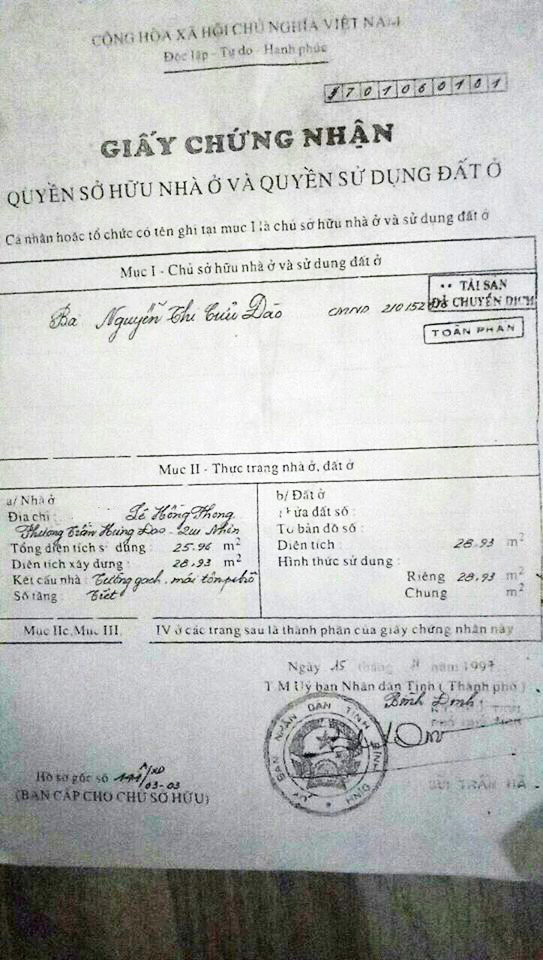 CỘNG HÒA XÃ HỘI CHỦ NGHĨA VIỆT NAM
Độc lập - Tự do - Hạnh phúc
GIẤY CHỨNG NHẬN
QUYỀN SỞ HỮU NHÀ Ở VÀ QUYỀN SỬ DỤNG ĐẤT Ở
Cá nhân hoặc tổ chức có tên ghi tại mục I là chủ sở hữu nhà ở và sử dụng đất ở
Mục I - Chủ sở hữu nhà ở và sử dụng đất ở
TÀI SẢN
ĐÃ CHUYỂN DỊCH
TOÀN PHẦN
Bà Nguyễn Thị Cửu Đào CMND
Mục II - Thực trạng nhà ở, đất ở
a/ Nhà ở
Địa chỉ : Lê Hồng Phong
Phường Trần Hưng Đạo - Qui Nhơn
Tổng diện tích sử dụng : 25.96 m²
Diện tích xây dựng : 28.93 m²
Kết cấu nhà : Tường gạch, mái tôn,
Số tầng : Trệt
b/ Đất ở
Thửa đất số :
Tờ bản đồ số :
Diện tích : 28.93 m²
Hình thức sử dụng :
Riêng 28.93 m²
Chung m²
Mục IIc, Mục III, IV ở các trang sau là thành phần của giấy chứng nhận này
Ngày 15 tháng năm 1997
T M Uỷ ban Nhân dân Tỉnh ( Thành phố )
Bình Định
ỦY BAN NHÂN DÂN TỈNH BÌNH ĐỊNH
Hồ sơ gốc số
03-03
(BẢN CẤP CHO CHỦ SỞ HỮU)
TRẦN HÀ